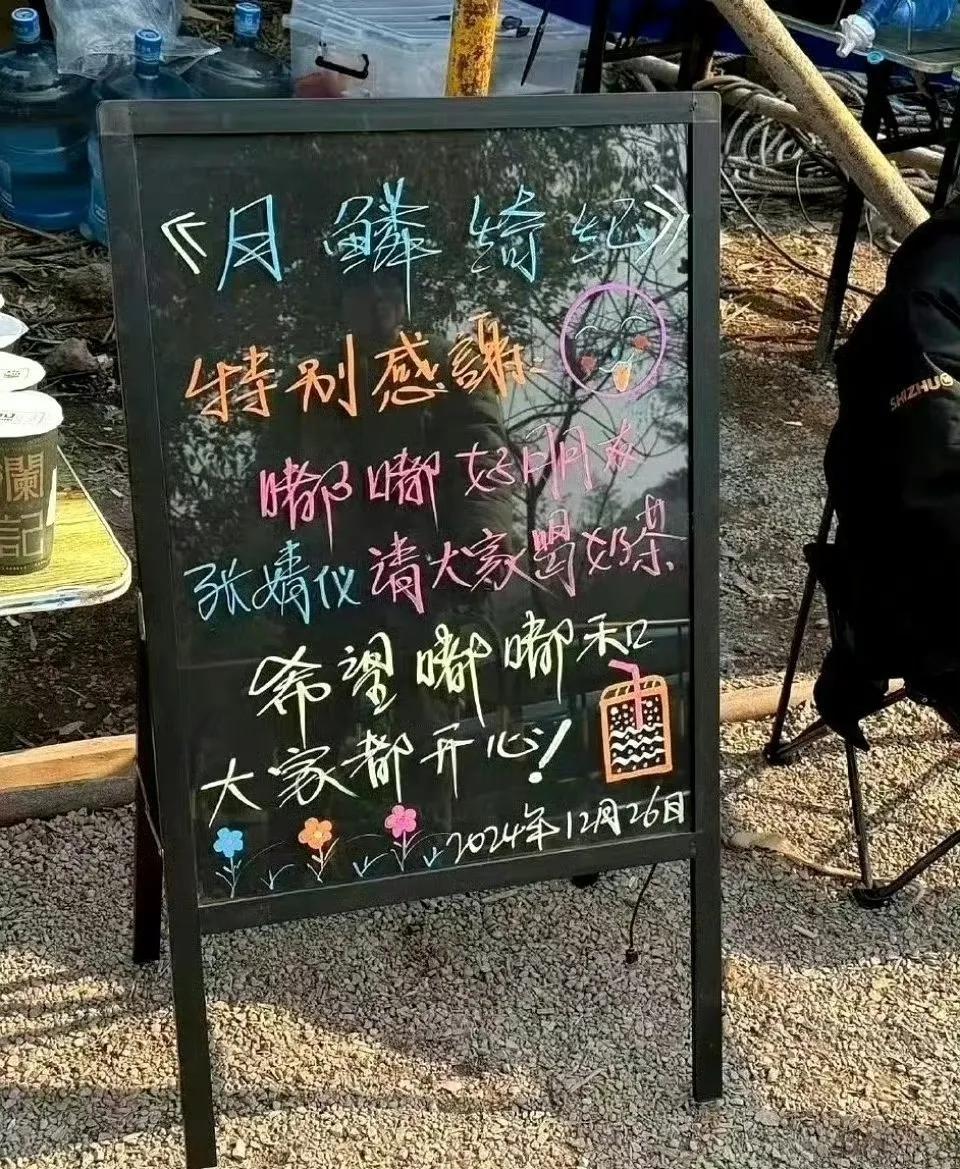 《月鳞绮纪》
特别感謝:
嘟嘟好朋友
张婧仪请大家喝奶茶
希望嘟嘟和
大家都开心!
2024年12月26日
瀾
記
SHIZHUO